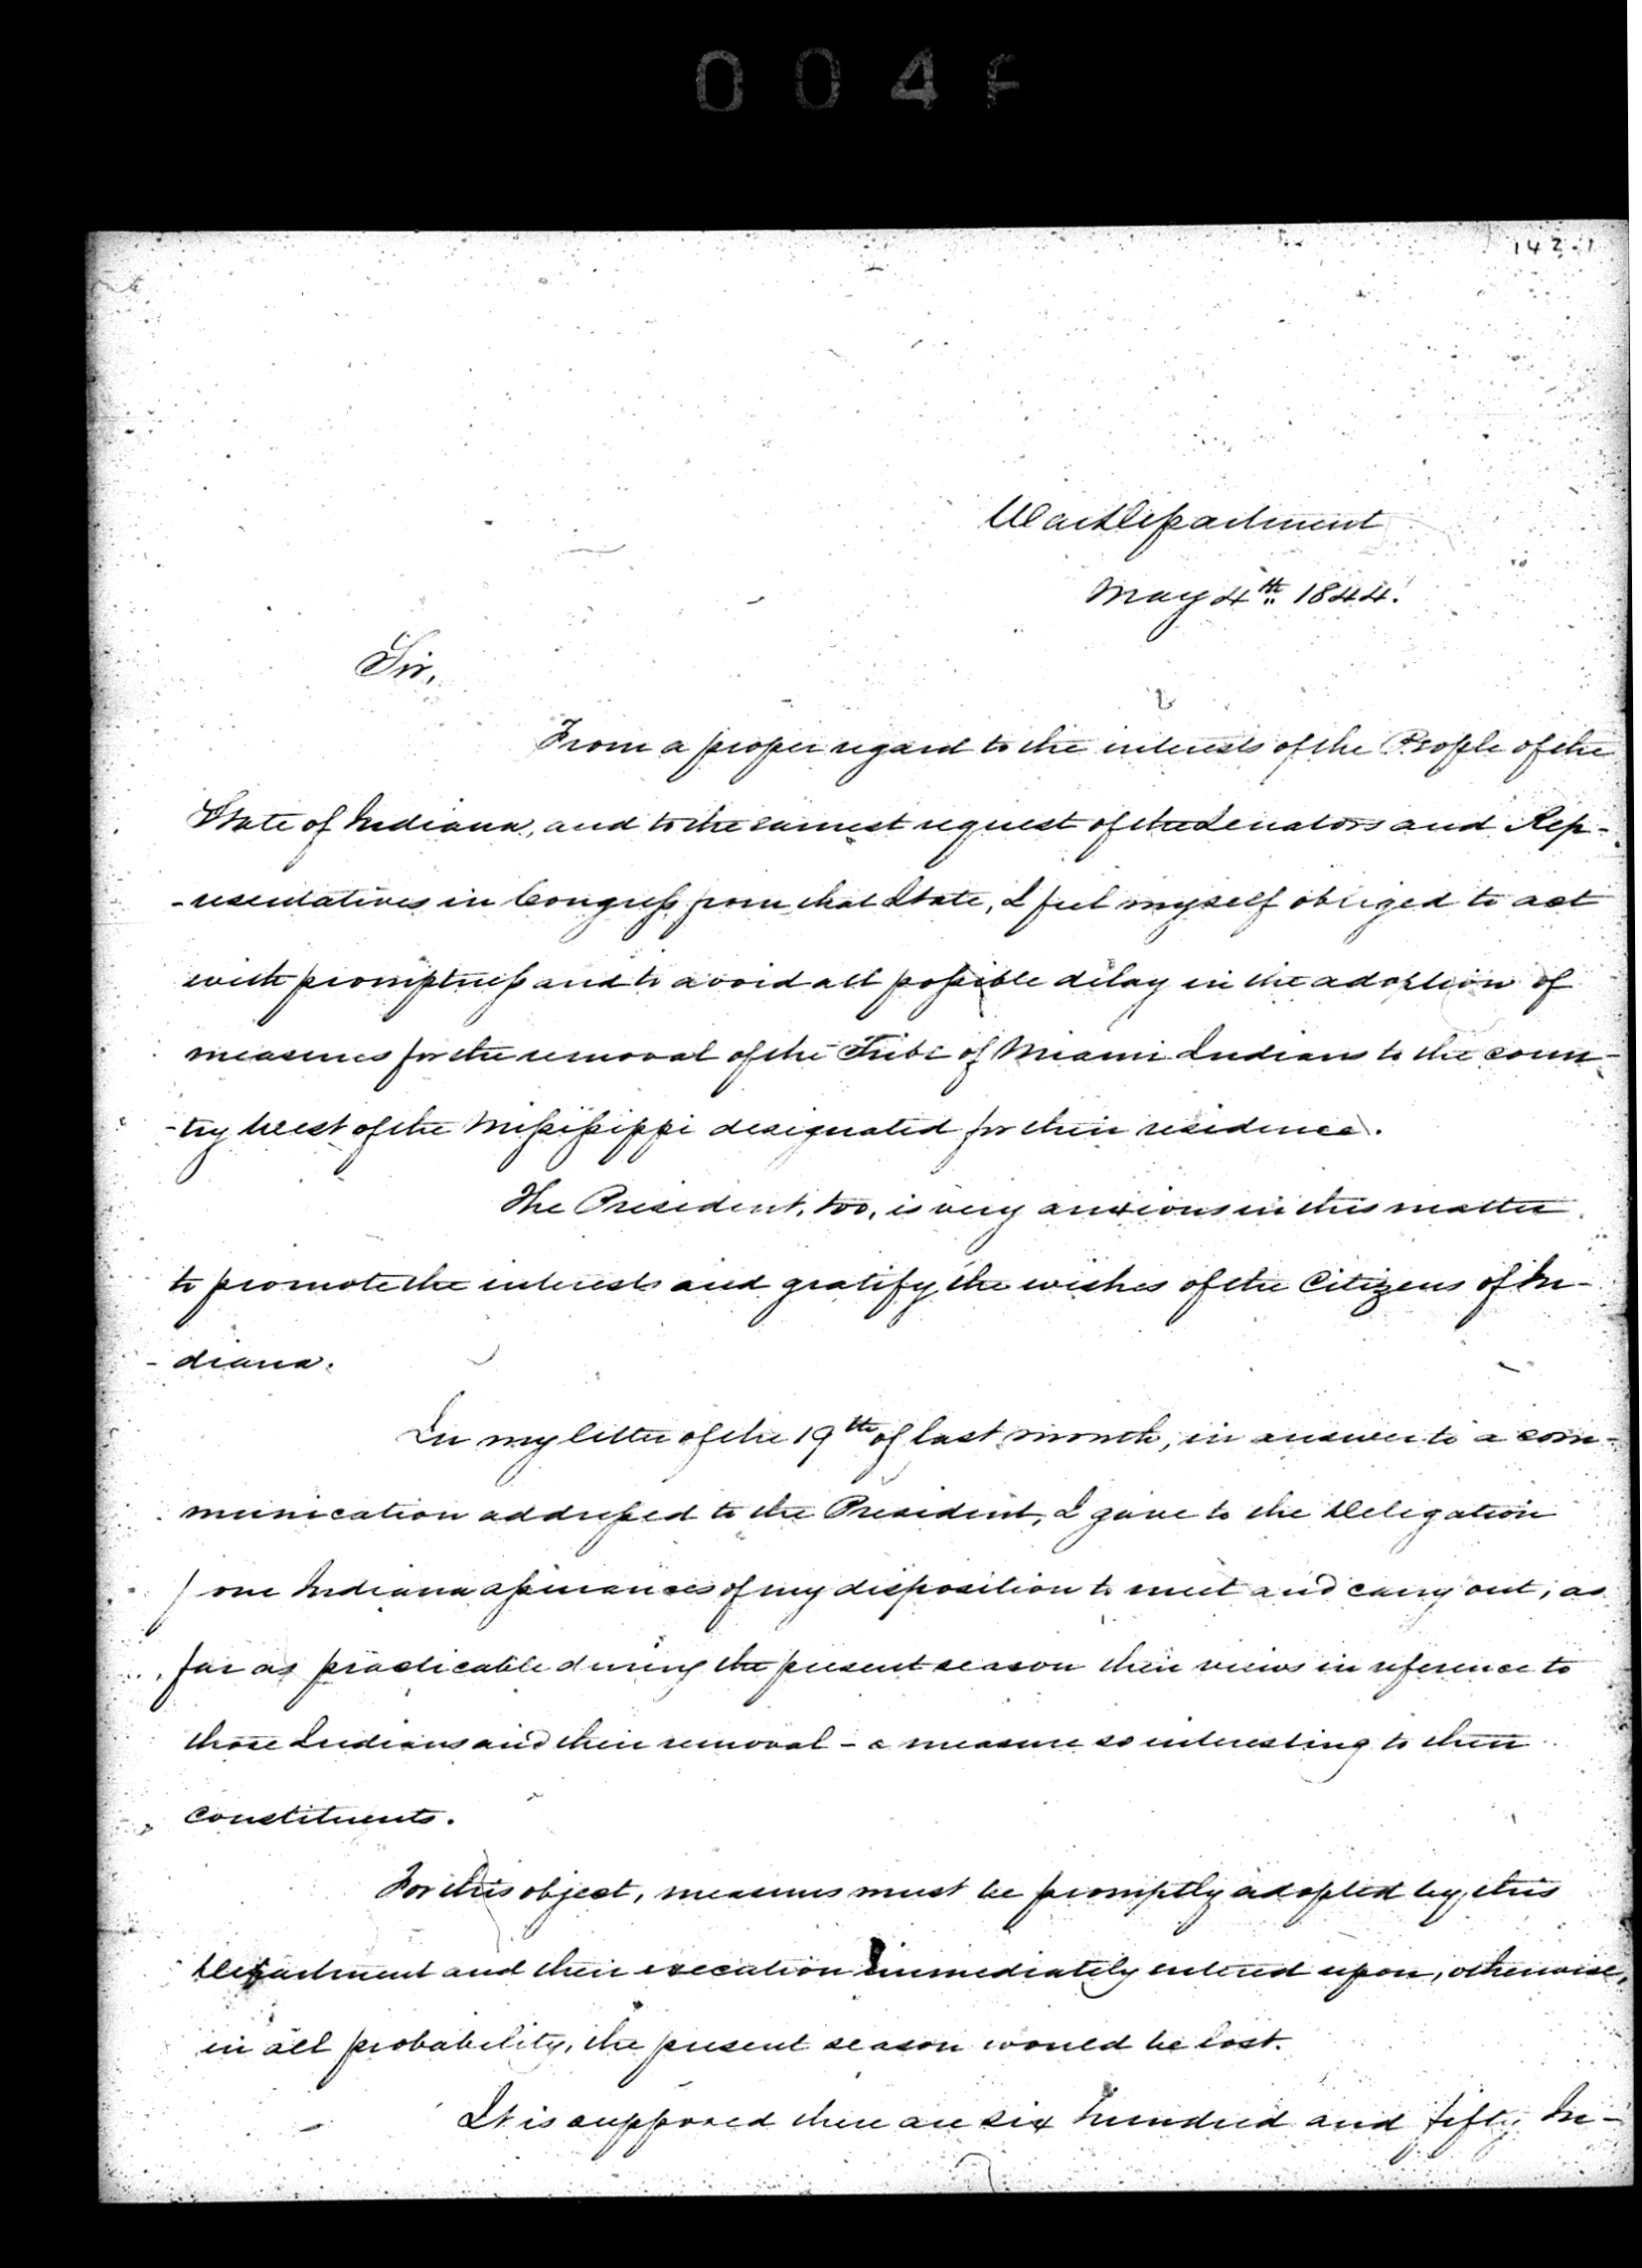 004
142-1
War Department
May 4th 1844.
Sir,
From a proper regard to the interests of the People of the
State of Indiana, and to the earnest request of the Senators and Rep-
-resentatives in Congress from that State, I feel myself obliged to act
with promptness and to avoid all possible delay in the adoption of
measures for the removal of the Tribe of Miami Indians to the coun-
-try West of the Mississippi designated for their residence.
The President, too, is very anxious in this matter
to promote the interests and gratify the wishes of the Citizens of In-
-diana.
In my letter of the 19th of last month, in answer to a com-
munication addressed to the President, I gave to the Delegation
from Indiana assurances of my disposition to meet and carry out, as
far as practicable during the present season their views in reference to
those Indians and their removal - a measure so interesting to their
constituents.
For this object, measures must be promptly adopted by this
Department and their execution immediately entered upon, otherwise,
in all probability, the present season would be lost.
It is supposed there are six hundred and fifty In-